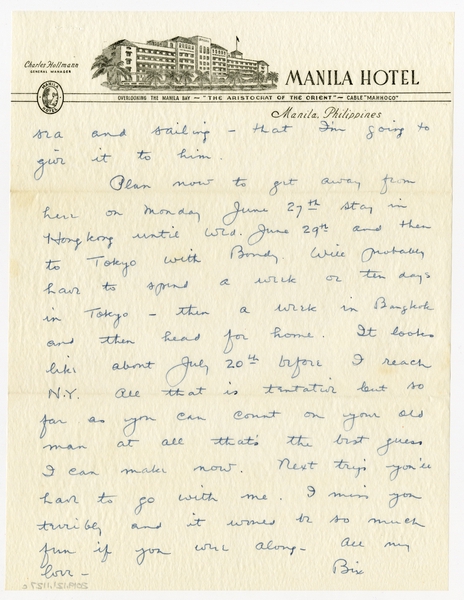 Charles Hollmann
GENERAL MANAGER
MANILA HOTEL
OVERLOOKING THE MANILA BAY — "THE ARISTOCRAT OF THE ORIENT" — CABLE "MANHOCO"
Manila, Philippines
sea and sailing - that I'm going to
give it to him.
Plan now to get away from
here on Monday June 27th stay in
Hongkong until Wed. June 29th and then
to Tokyo with Bondy. Will probably
have to spend a week or ten days
in Tokyo - then a week in Bangkok
and then head for home. It looks
like about July 20th before I reach
N.Y. All that is tentative but so
far as you can count on your old
man at all that's the best guess
I can make now. Next trip you'll
have to go with me. I miss you
terribly and it would be so much
fun if you were along - All my
love - Bix